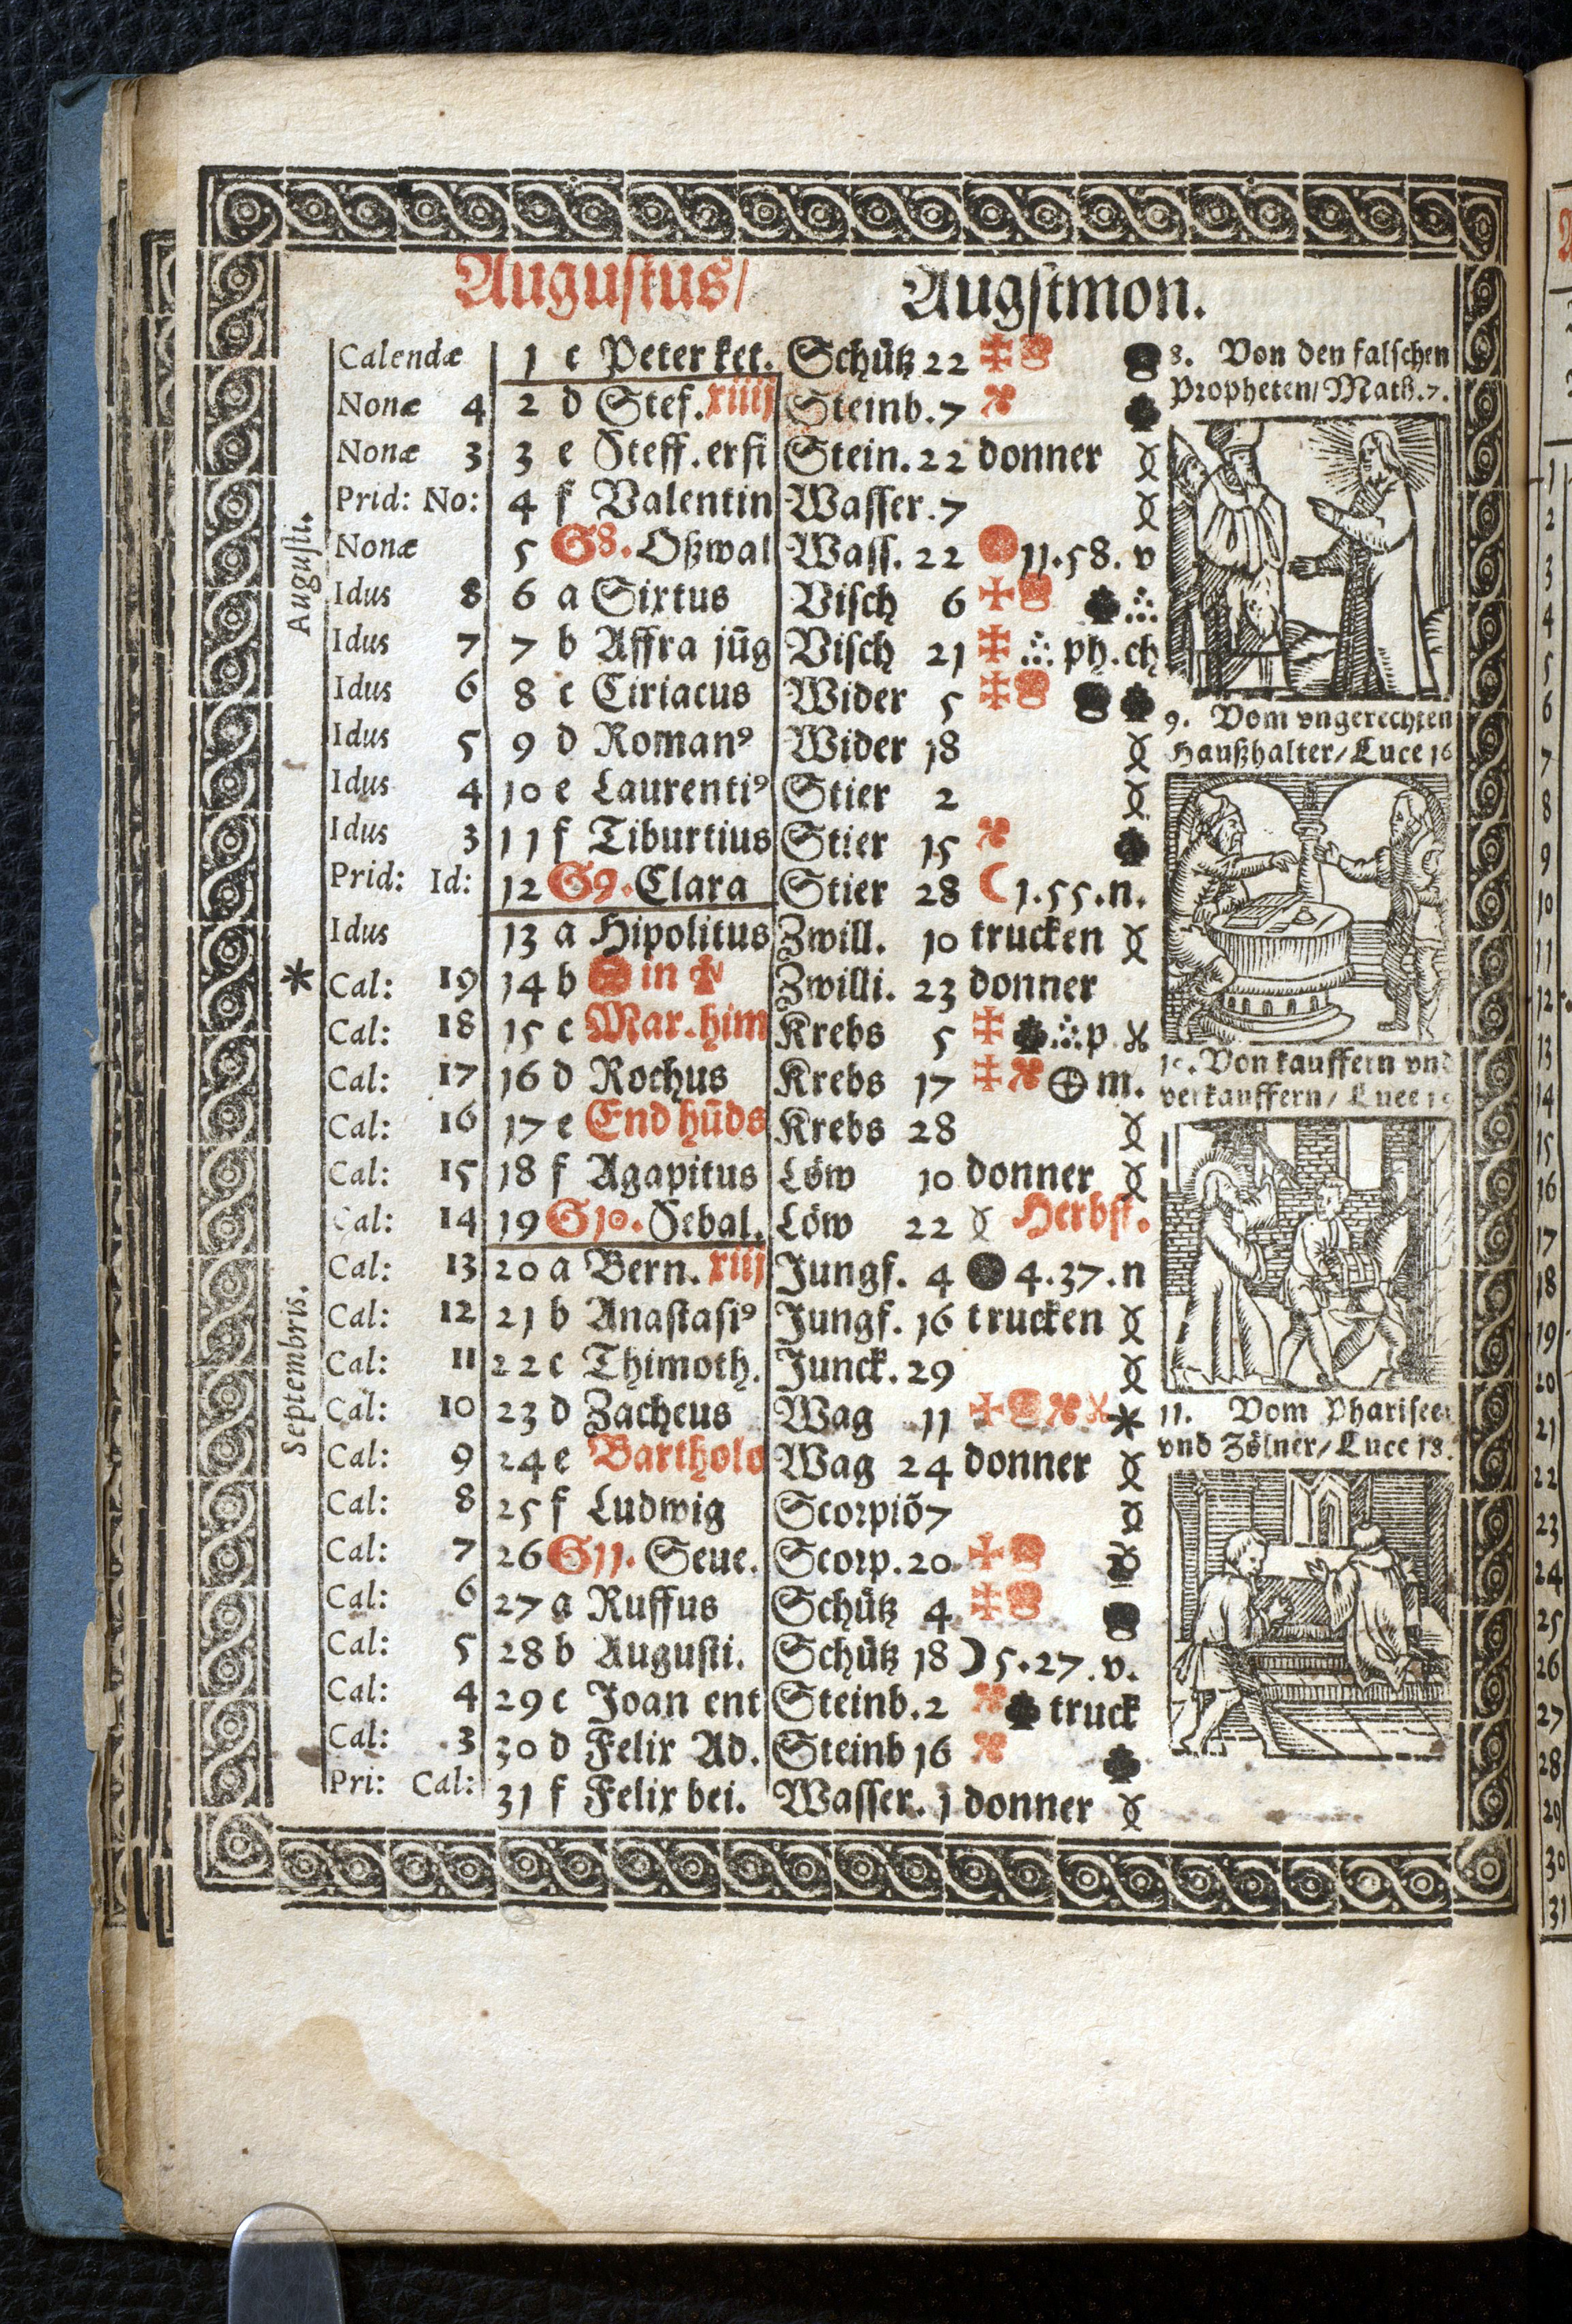 Augustus/ Augstmon.
Calendæ 1 c Peter ket. Schütz 22
Nonæ 4 2 d Stef. xiiij Steinb. 7
Nonæ 3 3 e Steff. erfi Stein. 22 donner
Prid: No: 4 f Valentin Wasser. 7
Nonæ 5 G8. Oßwal Wass. 22 11.58. v
Idus 8 6 a Sixtus Visch 6
Idus 7 7 b Affra jūg Visch 21 ph. ch
Idus 6 8 c Ciriacus Wider 5
Idus 5 9 d Romanꝰ Wider 18
Idus 4 10 e Laurentiꝰ Stier 2
Idus 3 11 f Tiburtius Stier 15
Prid: Id: 12 G9. Clara Stier 28 ☾ 1.55. n.
Idus 13 a Hipolitus Zwill. 10 trucken
* Cal: 19 14 b in Zwilli. 23 donner
Cal: 18 15 c Mar. him Krebs 5 p
Cal: 17 16 d Rochus Krebs 17 m.
Cal: 16 17 e End hūds Krebs 28
Cal: 15 18 f Agapitus Löw 10 donner
Cal: 14 19 G10. Sebal. Löw 22 Herbst.
Cal: 13 20 a Bern. xiij Jungf. 4 4.37. n
Cal: 12 21 b Anastasiꝰ Jungf. 16 trucken
Cal: 11 22 c Thimoth. Junck. 29
Cal: 10 23 d Zacheus Wag 11 *
Cal: 9 24 e Bartholo Wag 24 donner
Cal: 8 25 f Ludwig Scorpiō 7
Cal: 7 26 G11. Seue. Scorp. 20
Cal: 6 27 a Ruffus Schütz 4
Cal: 5 28 b Augusti. Schütz 18 ☽ 5.27. v.
Cal: 4 29 c Joan ent Steinb. 2 truck
Cal: 3 30 d Felix Ad. Steinb 16
Pri: Cal: 31 f Felix bei. Wasser. 1 donner
Augusti.
Septembris.
8. Von den falschen
Propheten/ Math. 7.
9. Vom vngerechten
Haußhalter/ Luce 16
10. Von kauffern vnd
verkauffern/ Luce 19
11. Vom Pharisee
vnd Zölner/ Luce 18.
1
2
3
4
5
6
7
8
9
10
11
12
13
14
15
16
17
18
19
20
21
22
23
24
25
26
27
28
29
30
31